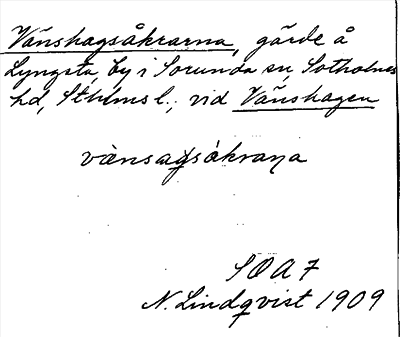 Vänshagsåkrarna, gärde å
Lyngsta, by i Sorunda sn, Sotholms
hd, Sthlms l., vid Vänshagen
vänsagsåkraṇa
SOA 7
N. Lindqvist 1909